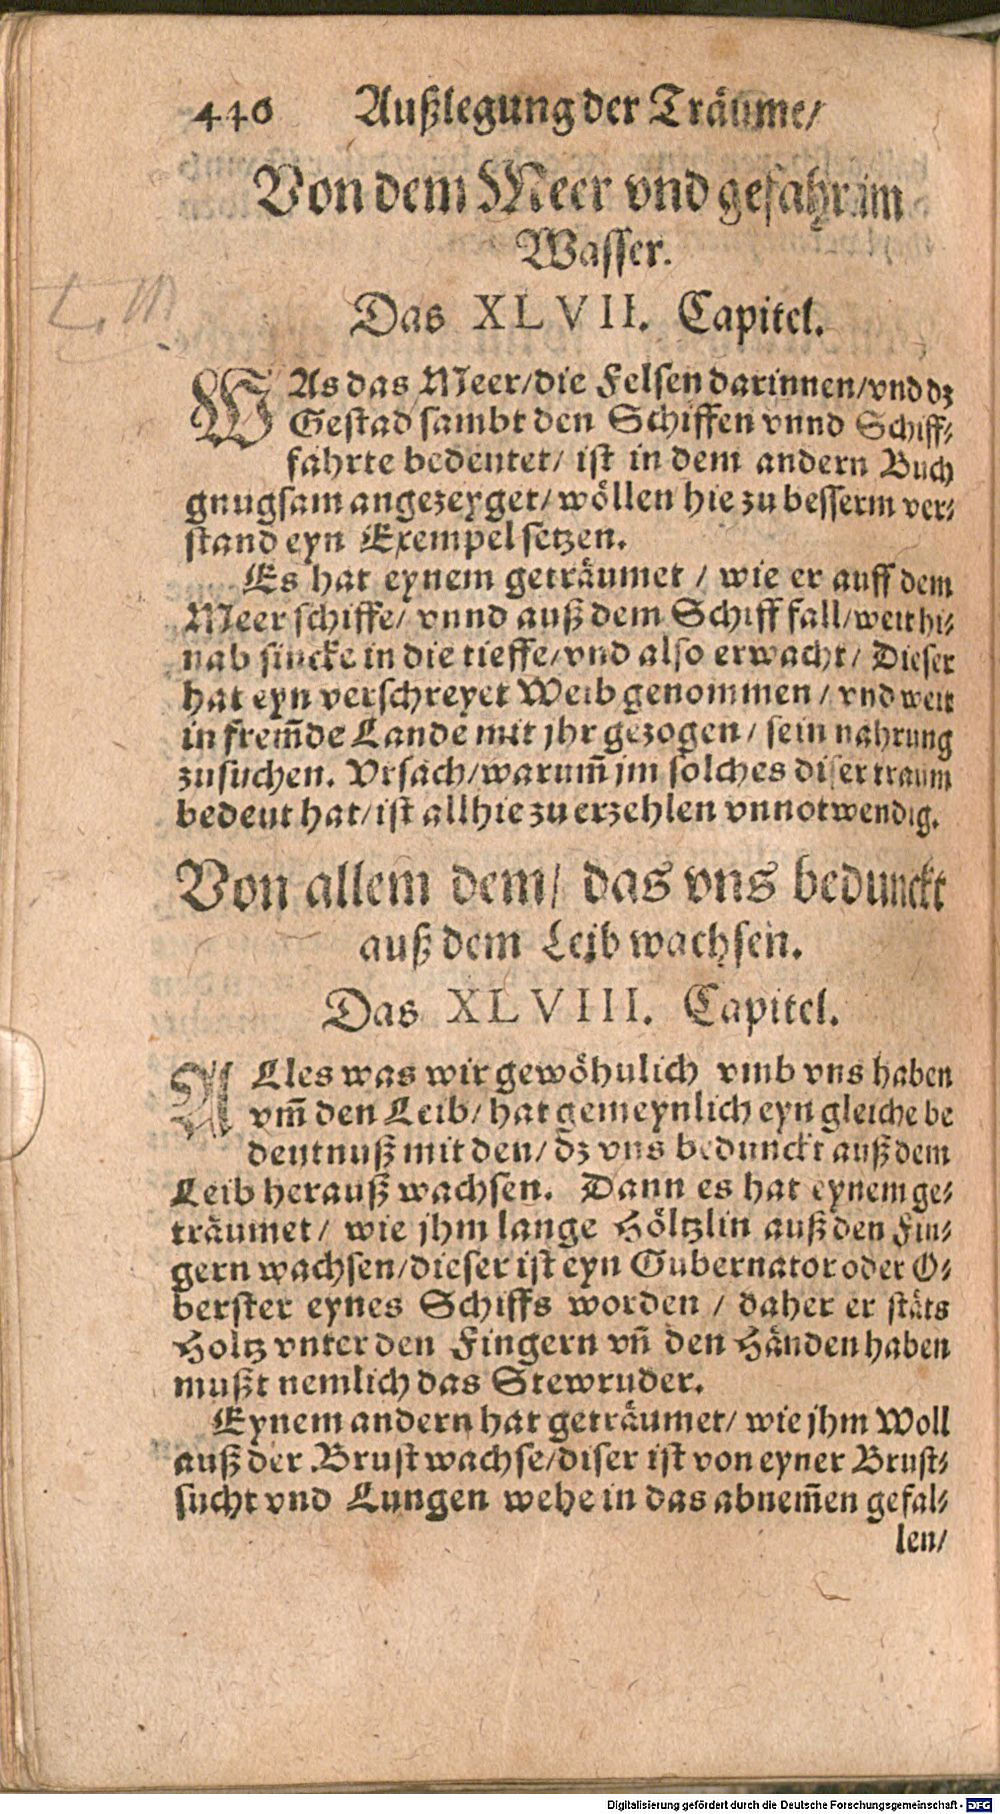 440 Außlegung der Träume/
Von dem Meer vnd gefahr im
Wasser.
Das XLVII. Capitel.
WAs das Meer/die Felsen darinnen/vnd dz
Gestad sambt den Schiffen vnnd Schiff-
fahrte bedeutet/ ist in dem andern Buch
gnugsam angezeyget/wöllen hie zu besserm ver-
stand eyn Exempel setzen.
Es hat eynem geträumet / wie er auff dem
Meer schiffe/ vnnd auß dem Schiff fall/weit hi-
nab sincke in die tieffe/vnd also erwacht/ Dieser
hat eyn verschreyet Weib genommen / vnd weit
in frem̃de Lande mit jhr gezogen / sein nahrung
zusuchen. Vrsach/warum̃ jm solches diser traum
bedeut hat/ist allhie zu erzehlen vnnotwendig.
Von allem dem/ das vns bedunckt
auß dem Leib wachsen.
Das XLVIII. Capitel.
ALles was wir gewöhnlich vmb vns haben
vm̃ den Leib/ hat gemeynlich eyn gleiche be
deutnuß mit den/ dz vns bedunckt auß dem
Leib herauß wachsen. Dann es hat eynem ge-
träumet/ wie jhm lange Höltzlin auß den Fin-
gern wachsen/dieser ist eyn Gubernator oder O-
berster eynes Schiffs worden / daher er stäts
Holtz vnter den Fingern vn̄ den Händen haben
mußt nemlich das Stewruder.
Eynem andern hat geträumet/ wie jhm Woll
auß der Brust wachse/diser ist von eyner Brust-
sucht vnd Lungen wehe in das abnem̃en gefal-
len/
Digitalisierung gefördert durch die Deutsche Forschungsgemeinschaft - DFG